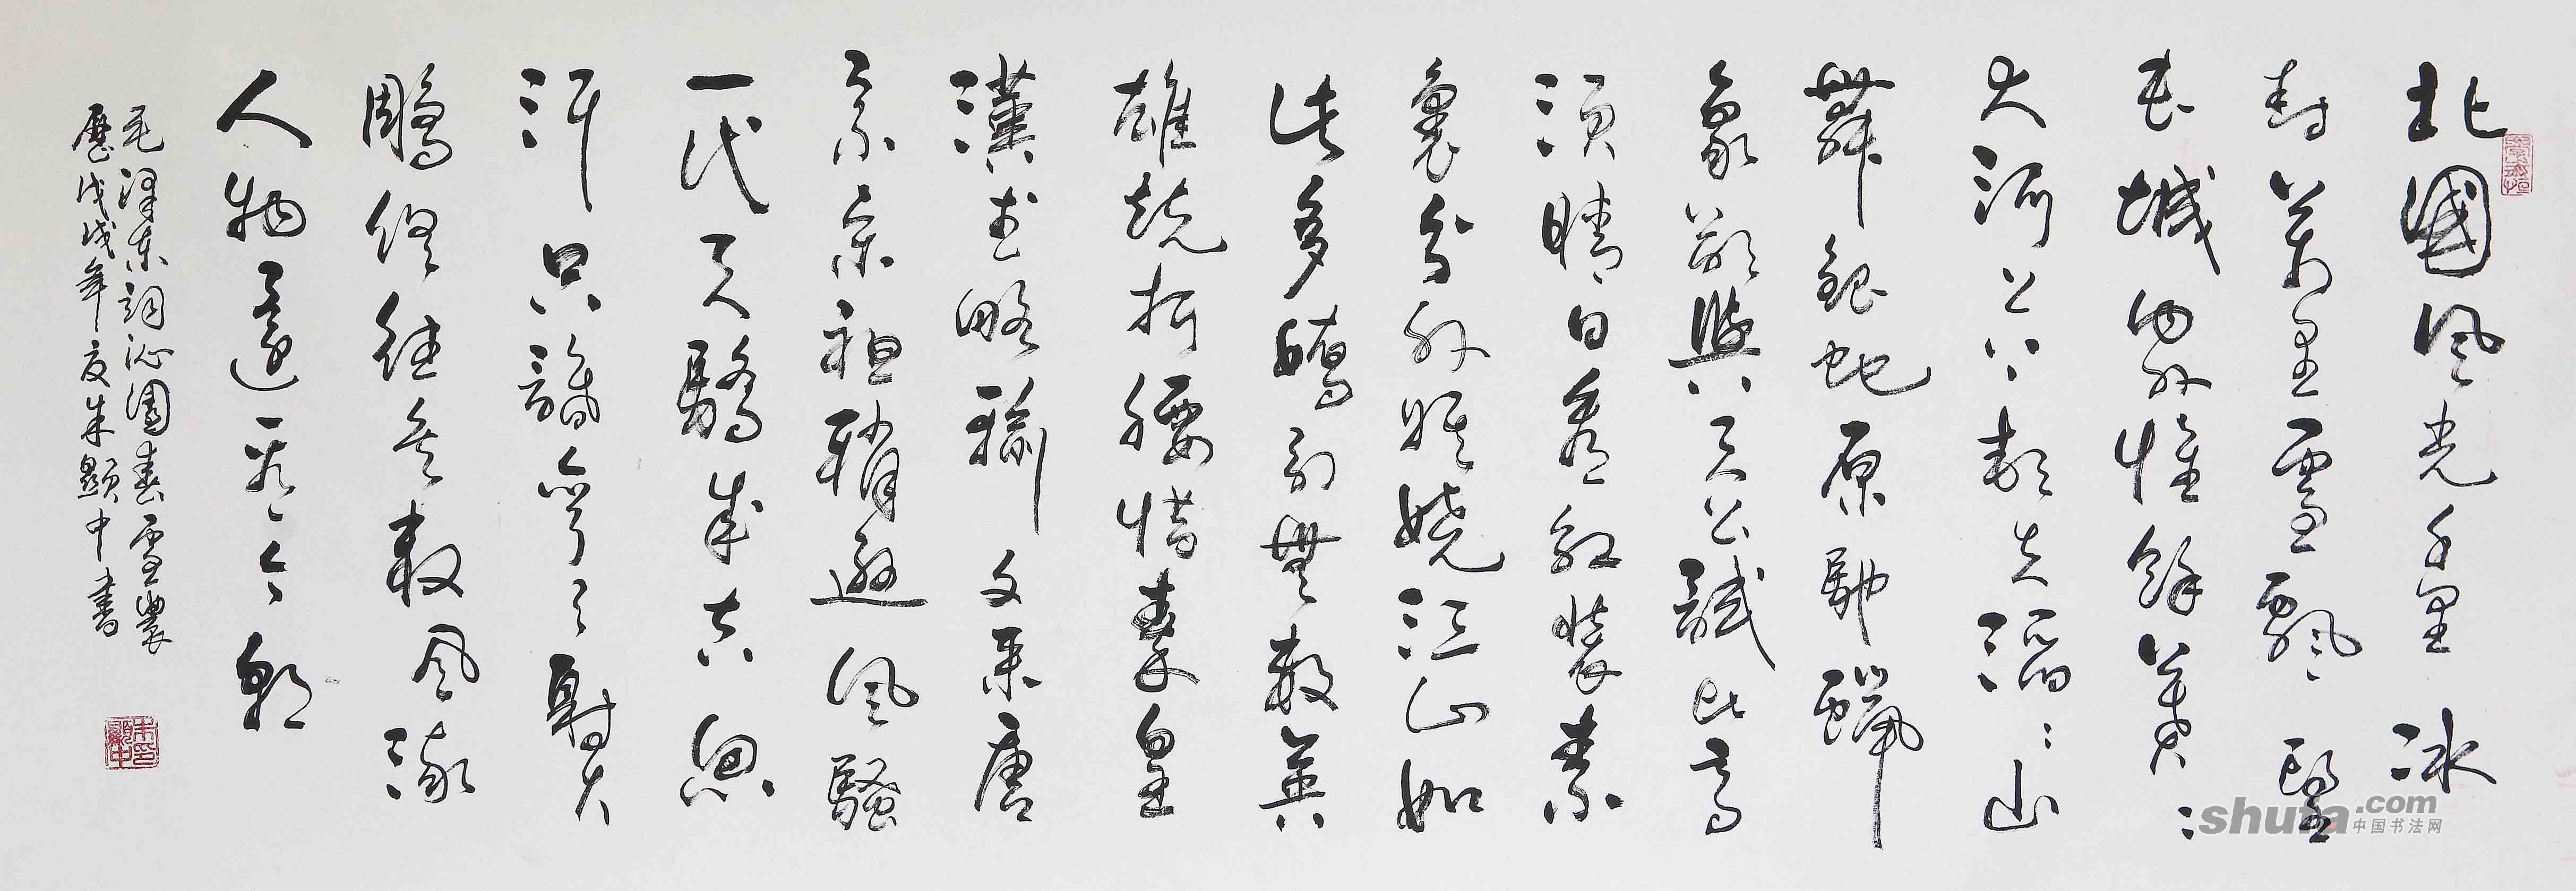 北國風光千里冰
封萬里雪飄望
長城內外惟餘莽々
大河上下頓失滔々山
舞銀蛇原馳蠟
象欲與天公試比高
須晴日看紅裝素
裹分外妖嬈江山如
此多嬌引無數英
雄競折腰惜秦皇
漢武略輸文采唐
宗宋祖稍遜風騷
一代天驕成吉思
汗只識彎弓射大
鵰俱往矣數風流
人物還看今朝
毛澤東詞沁園春雪農
歷戊戌年夏朱顯中書
朱顯中印
shufa.com
中国书法网